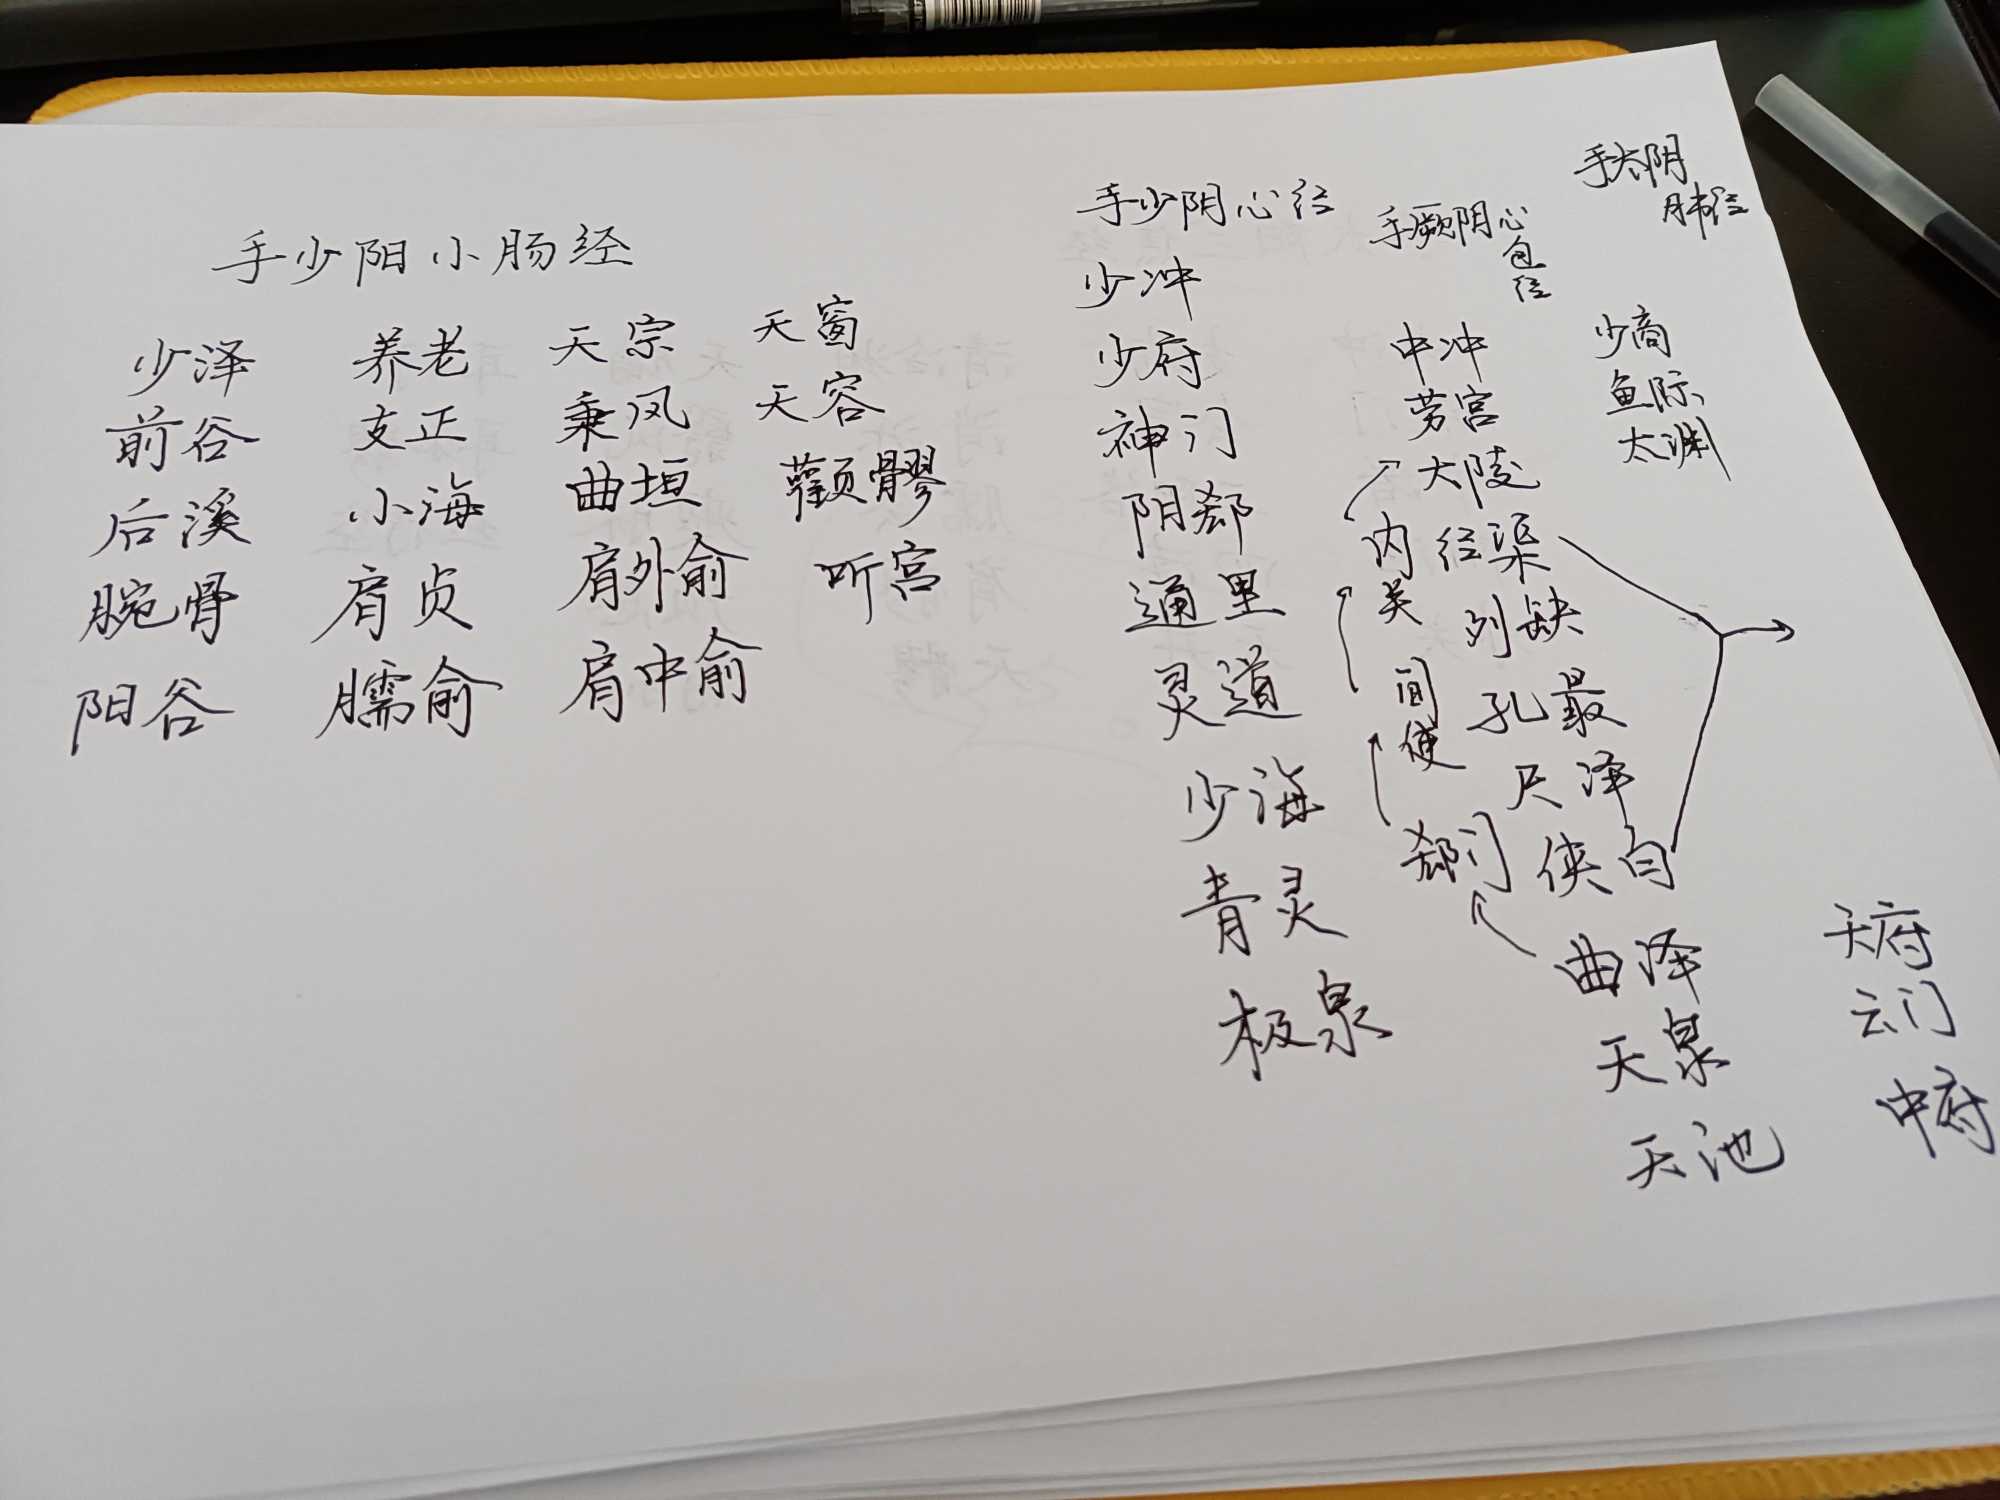 手少阳小肠经
少泽 养老 天宗 天窗
前谷 支正 秉风 天容
后溪 小海 曲垣 颧髎
腕骨 肩贞 肩外俞 听宫
阳谷 臑俞 肩中俞
手少阴心经
少冲
少府
神门
阴郄
通里
灵道
少海
青灵
极泉
手厥阴心
包
经
中冲
劳宫
大陵
内
关
间
使
郄门
曲泽
天泉
天池
手太阴
肺经
少商
鱼际
太渊
经渠
列缺
孔最
尺泽
侠白
天府
云门
中府